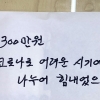 300만원
코로나로 어려운 시기에
나누어 힘내었으